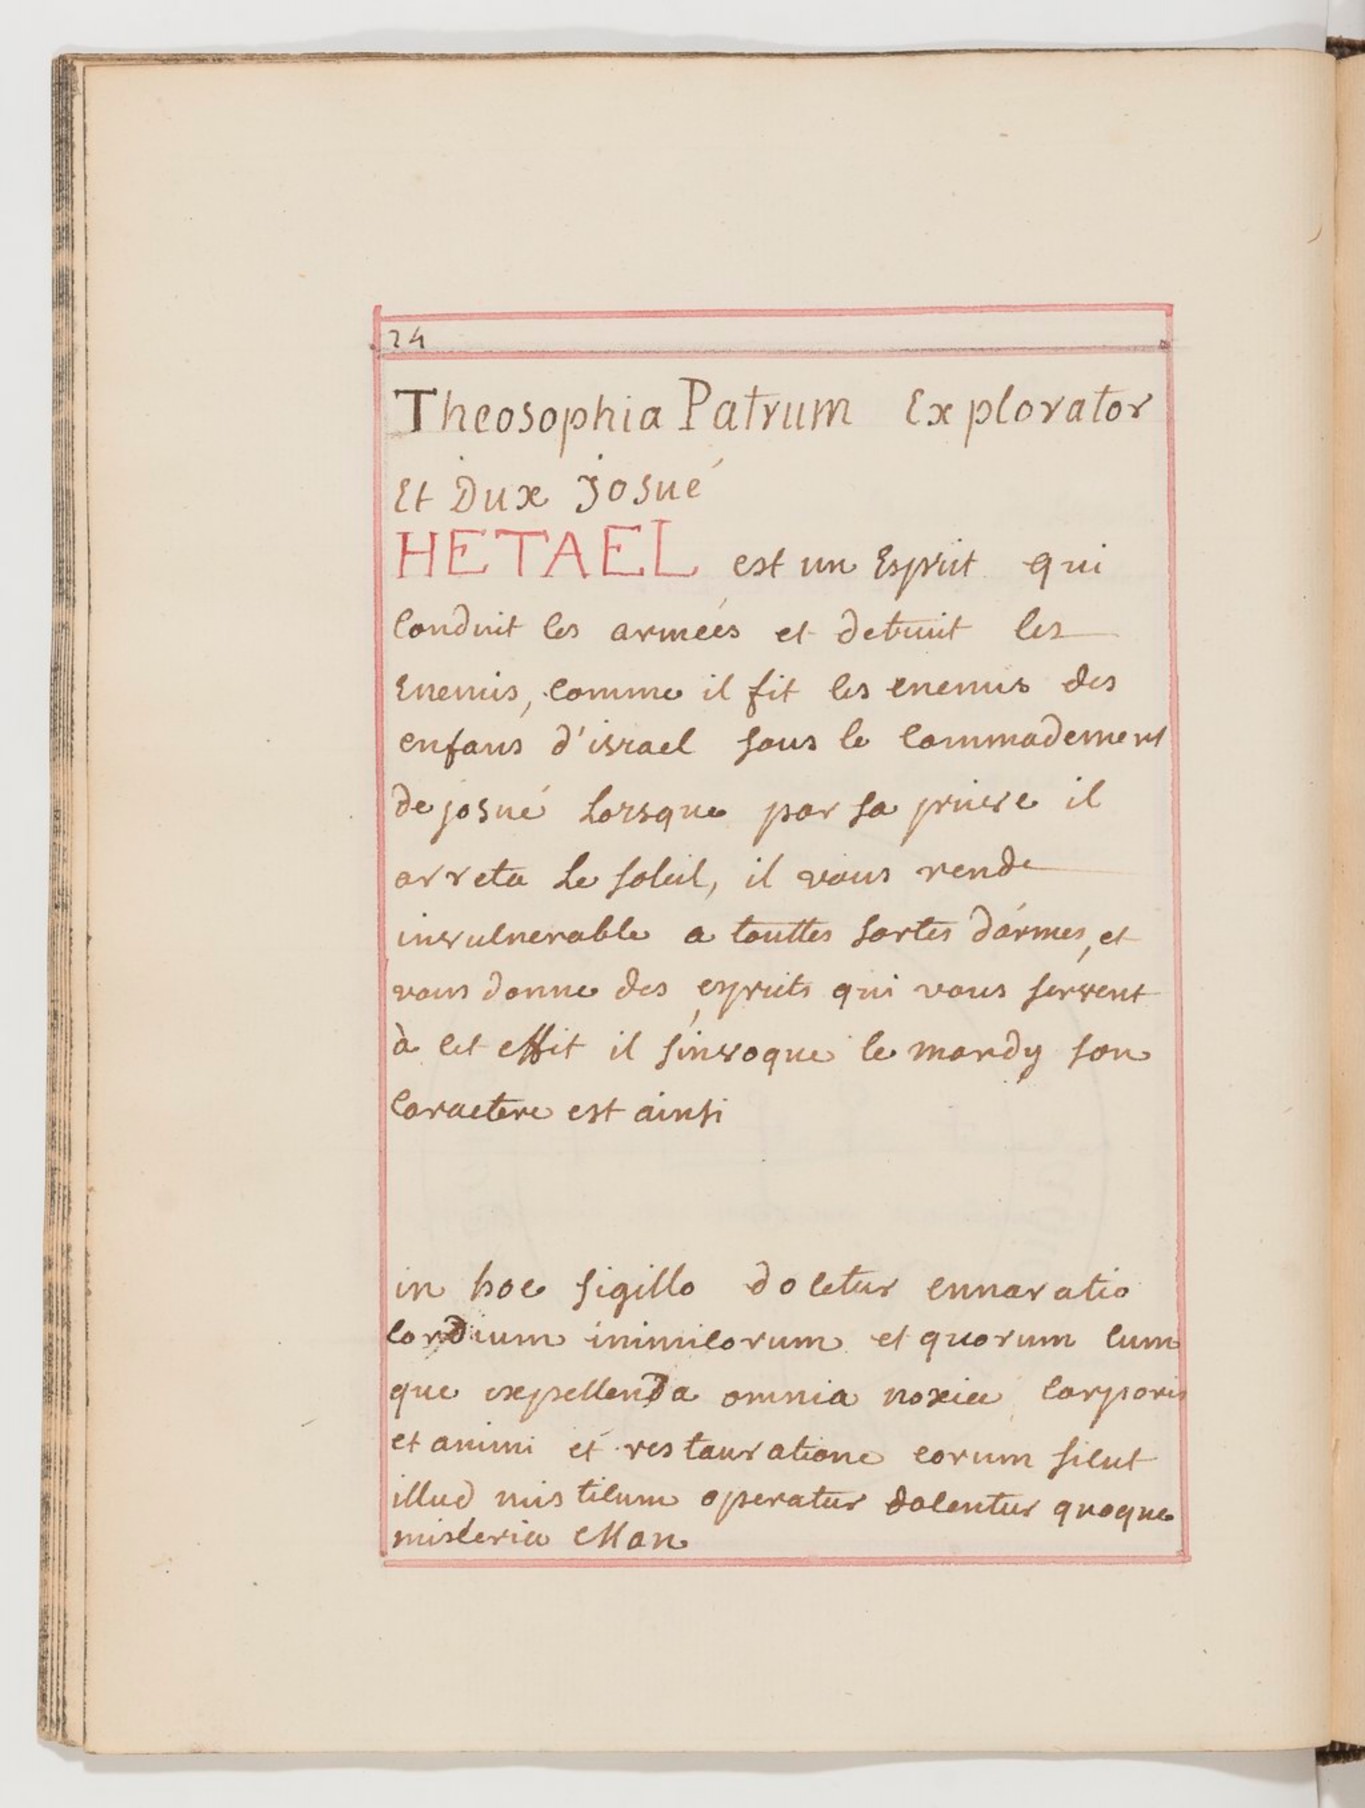 24
Theosophia Patrum Explorator
Et Dux Josué
HETAEL est un Esprit qui
conduit les armeés et detruit les
Enemis, comme il fit les enemis des
enfans d'israel sous le commademens
de josué Lorsque par sa priere il
arreta Le soleil, il vous rende
invulnerable a touttes sortes d'armes, et
vous donne des esprits qui vous servent
à cet effit il s'invoque le mardy son
caractere est ainsi
in hoc sigillo docetur ennaratio
cordium inimicorum et quorum cum
que expellenda omnia noxia corporis
et animi et restauratione eorum sicut
illud misticum operatur docentur quoque
misteria Man